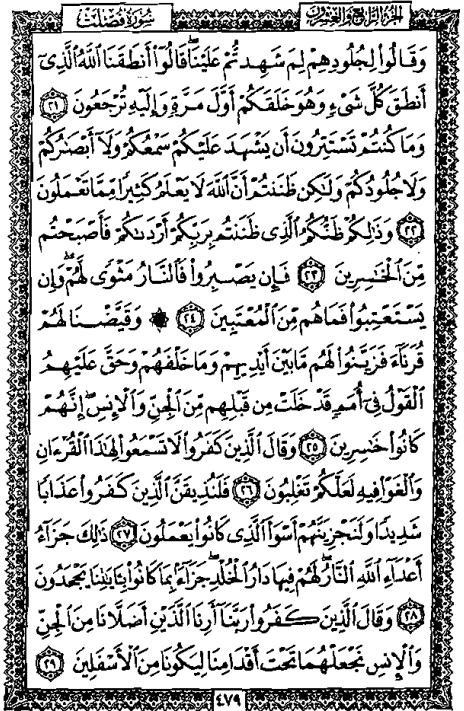 سُورَةُ فُصِّلَتْ الجُزْءُ الرَّابِعُ وَالعِشْرُونَ
وَقَالُوا۟ لِجُلُودِهِمْ لِمَ شَهِدتُّمْ عَلَيْنَا ۖ قَالُوٓا۟ أَنطَقَنَا ٱللَّهُ ٱلَّذِىٓ
أَنطَقَ كُلَّ شَىْءٍ وَهُوَ خَلَقَكُمْ أَوَّلَ مَرَّةٍ وَإِلَيْهِ تُرْجَعُونَ ٢١
وَمَا كُنتُمْ تَسْتَتِرُونَ أَن يَشْهَدَ عَلَيْكُمْ سَمْعُكُمْ وَلَآ أَبْصَٰرُكُمْ
وَلَا جُلُودُكُمْ وَلَٰكِن ظَنَنتُمْ أَنَّ ٱللَّهَ لَا يَعْلَمُ كَثِيرًا مِّمَّا تَعْمَلُونَ
٢٢ وَذَٰلِكُمْ ظَنُّكُمُ ٱلَّذِى ظَنَنتُم بِرَبِّكُمْ أَرْدَىٰكُمْ فَأَصْبَحْتُم
مِّنَ ٱلْخَٰسِرِينَ ٢٣ فَإِن يَصْبِرُوا۟ فَٱلنَّارُ مَثْوًى لَّهُمْ ۖ وَإِن
يَسْتَعْتِبُوا۟ فَمَا هُم مِّنَ ٱلْمُعْتَبِينَ ٢٤ ۞ وَقَيَّضْنَا لَهُمْ
قُرَنَآءَ فَزَيَّنُوا۟ لَهُم مَّا بَيْنَ أَيْدِيهِمْ وَمَا خَلْفَهُمْ وَحَقَّ عَلَيْهِمُ
ٱلْقَوْلُ فِىٓ أُمَمٍ قَدْ خَلَتْ مِن قَبْلِهِم مِّنَ ٱلْجِنِّ وَٱلْإِنسِ ۖ إِنَّهُمْ
كَانُوا۟ خَٰسِرِينَ ٢٥ وَقَالَ ٱلَّذِينَ كَفَرُوا۟ لَا تَسْمَعُوا۟ لِهَٰذَا ٱلْقُرْءَانِ
وَٱلْغَوْا۟ فِيهِ لَعَلَّكُمْ تَغْلِبُونَ ٢٦ فَلَنُذِيقَنَّ ٱلَّذِينَ كَفَرُوا۟ عَذَابًا
شَدِيدًا وَلَنَجْزِيَنَّهُمْ أَسْوَأَ ٱلَّذِى كَانُوا۟ يَعْمَلُونَ ٢٧ ذَٰلِكَ جَزَآءُ
أَعْدَآءِ ٱللَّهِ ٱلنَّارُ ۖ لَهُمْ فِيهَا دَارُ ٱلْخُلْدِ ۖ جَزَآءًۢ بِمَا كَانُوا۟ بِـَٔايَٰتِنَا يَجْحَدُونَ
٢٨ وَقَالَ ٱلَّذِينَ كَفَرُوا۟ رَبَّنَآ أَرِنَا ٱلَّذَيْنِ أَضَلَّانَا مِنَ ٱلْجِنِّ
وَٱلْإِنسِ نَجْعَلْهُمَا تَحْتَ أَقْدَامِنَا لِيَكُونَا مِنَ ٱلْأَسْفَلِينَ ٢٩
٤٧٩